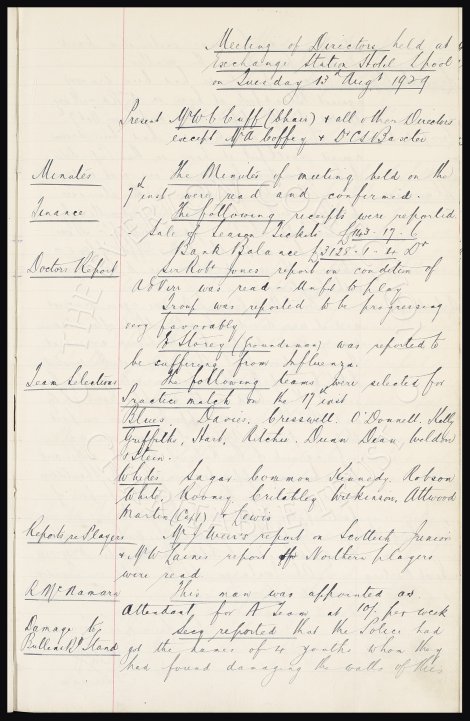 Meeting of Directors held at
Exchange Station Hotel L'pool
on Tuesday 13th Augt 1929
Present Mr W C Cuff (Chair) & all other Directors
except Mr A Coffey & Dr C S Baxter
Minutes
The Minutes of meeting held on the
7th inst were read and confirmed.
Finance
The following receipts were reported
Sale of Season Tickets £143-17-6
Bank Balance £3125-1-4 Dr
Doctors Report
Sir Robt Jones report in condition of
was read - Unfit to play
Troup was reported to be progressing
very favorably
Storey (groundsman) was reported to
be suffering from Influenza.
Team Selections
The following teams were selected for
Practice match on the 17th inst
Blues Davies, Cresswell, O'Donnell, Kelly
Griffiths, Hart, Ritchie, Dunn Dean, Weldon
& Stein.
Whites Sagar Common Kennedy, Robson
White, Rooney Critchley Wilkinson, Attwood
Martin (Capt) & Lewis
Reports re Players
Mr J Weir's report on Scottish Juniors
& Mr W report Northern players
were read.
R McNamara
This man was appointed as
Attendant for A Team at 10/- per week
Damage to
Bullens Rd Stand
Secy reported that the Police had
got the names of 4 youths whom they
had found damaging the walls of this